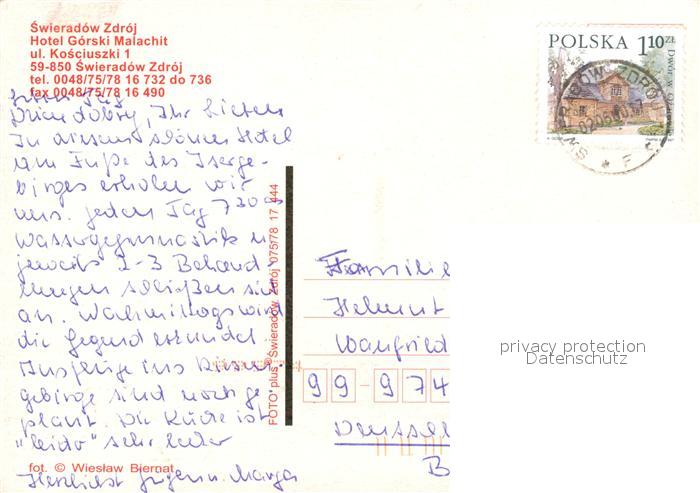 Świeradów Zdrój
Hotel Górski Malachit
ul. Kościuszki 1
59-850 Świeradów Zdrój
tel. 0048/75/78 16 732 do 736
fax 0048/75/78 16 490
Guten Tag
Dzien dobry, Ihr Lieben
In diesem schönen Hotel
am Fuße des Iserge-
birges erholen wir
uns. jeden Tag 7 30
Wassergymnastik u
jeweils 2-3 Behand-
lungen schließen sich
an. Nachmittags wird
die Gegend erkundet.
Ausflüge ins Riesen
gebirge sind noch ge-
plant. Die Küche ist
"leider" sehr lecker
Herzlichst Jürgen u. Marga
fot. © Wiesław Biernat
FOTO plus Świeradów Zdrój 075/78 17 444
POLSKA 1,10 ZŁ
Dwór w
ŚWIERADÓW ZDRÓJ
Familie
Helmut
Wanfried
99-974
Deutschl
privacy protection
Datenschutz